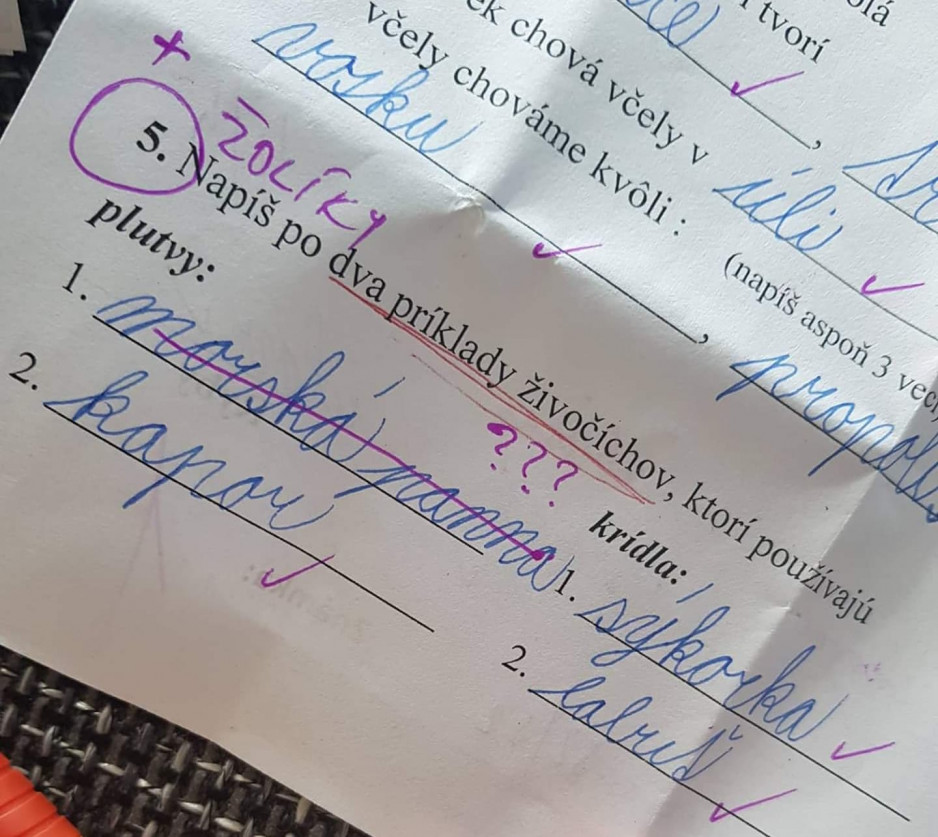 tvorí
chová včely v úli
včely chováme kvôli : (napíš aspoň 3 veci,
vosku ,
+
ŽOLÍKY
5. Napíš po dva príklady živočíchov, ktorí používajú
plutvy:
1. morská panna
???
2. kapor
krídla:
1. sýkorka
2. labuť